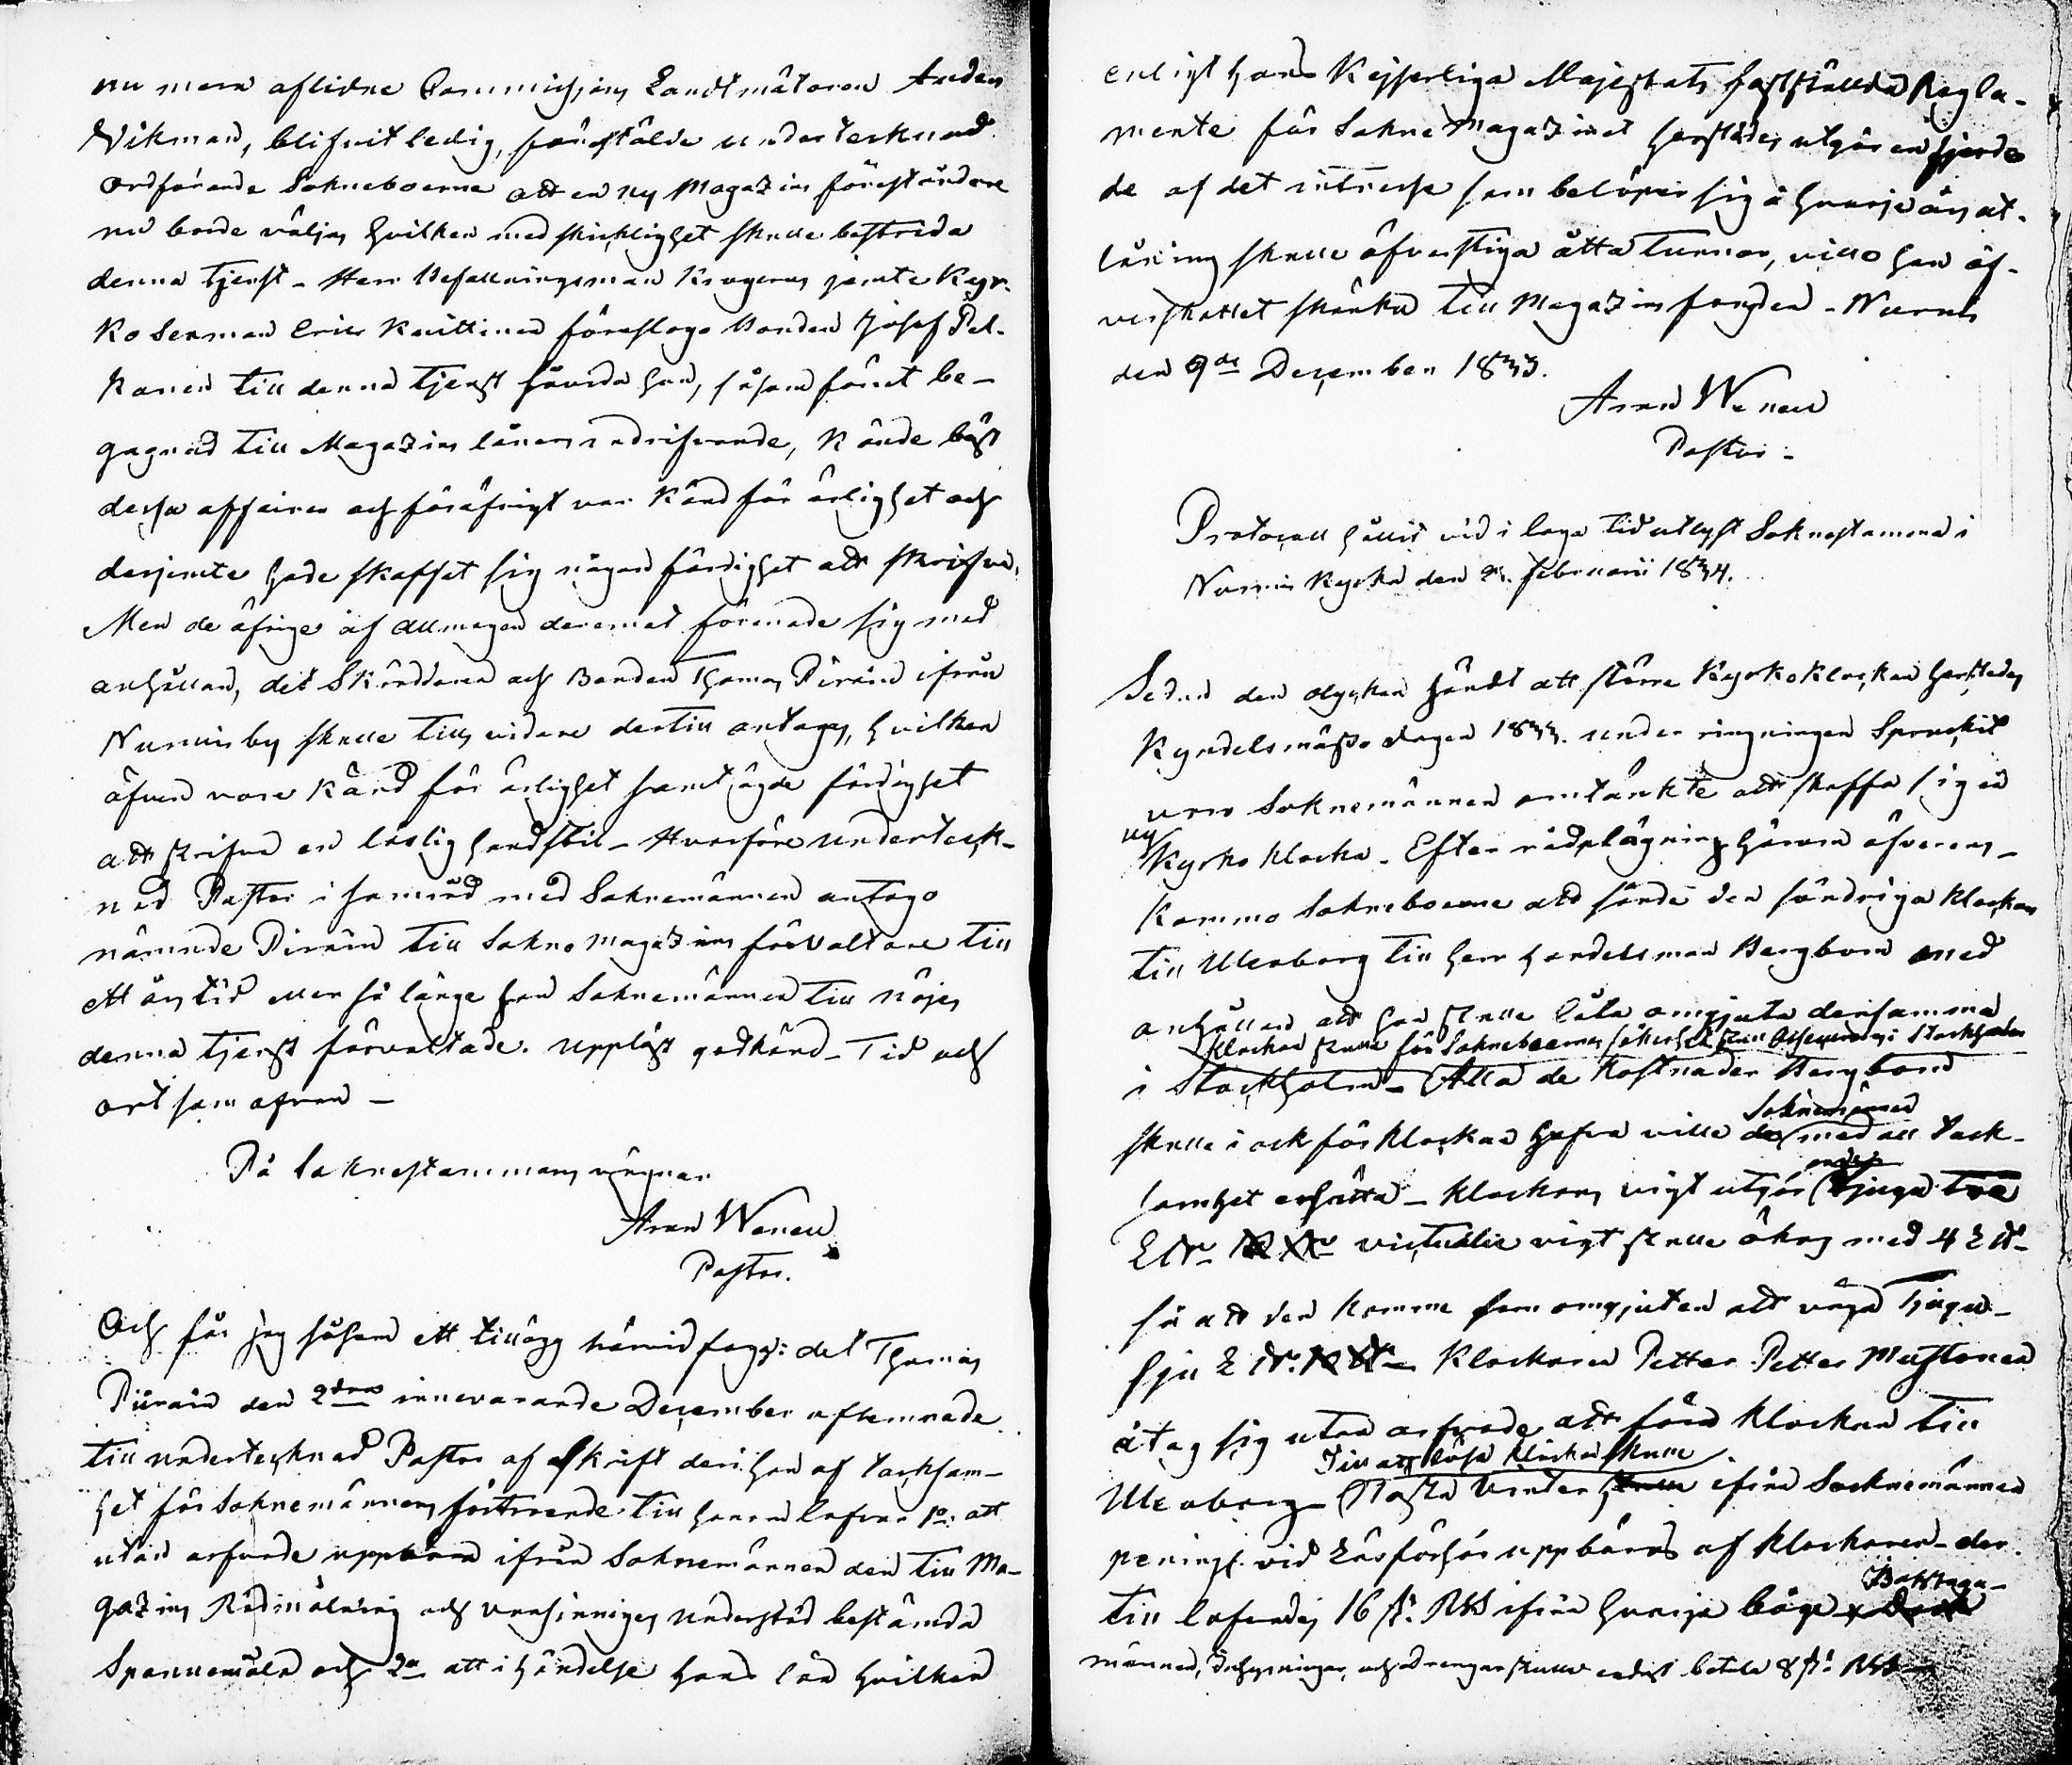 nu mera aflidne Commissions Landtmätaren Anders
Wikman, blifvit ledig, föreställde undertecknad
ordförande Sokneboerne att en ny Magazins föreståndare
nu borde väljas hvilken med skicklighet skulle bestrida
denna Tjenst - Herr Befallningsman Krogerus jemte Kyr-
ko Sexman Eric Knittinen föreslogo Bonden Josef Pel-
konen till denna tjenst hvarda han, såsom förut be-
gagnad till Magazins lånens indrifvande, kände bäst
dessa affairer och föröfrigt var känd för ärlighet och
derjemte hade skaffat sig någon färdighet att skrifva,
Men de öfrige af allmogen deremot förenade sig med
anhållan, det Skräddaren och Bonden Thomas Piirain ifrån
Nurmis by skulle tills vidare dertill antagas, hvilken
äfven vore känd för ärlighet samt ägde färdighet
att skrifva en läslig handstil - Hvarföre underteck-
nad Pastor i samråd med Soknemännen antogo
nämnde Pirain till Sokne magazins förvaltare till
ett års tid eller så länge han Soknemännen till nöjes
denna tjenst förvaltade. Uppläst godkänd - Tid och
ort som ofvan -
På Soknestammans vägnar
Aron Wenell
Pastor.
Och får jag såsom ett tillägg härvid foga: det Thomas
Piirain den 2dra innevarande December aflemnade
till undertecknad Pastor af Skrift deri han af tacksam-
het för Soknemännens förtroende till honom lofvar 1o: att
utan arfvode uppbära ifrån Soknemännen den till Ma-
gazins Rödmålning och vansinniges understöd bestämda
Spannemåln och 2o att i händelse hans lön hvilken
enligt Hans Kejserliga Majestäts fastställda Regla-
mente för Sokne Magazinet härstädes utgör en fjerde
de af det intresse som belöper sig å hvarje års ut-
låning skulle öfverstiga åtta Tunnor, ville han öf-
verskottet skänka till Magazins fonden - Nurmis
den 9de December 1833.
Aron Wenell
Pastor -
Protocoll hållit vid i laga tid utlyst Soknestamma i
Nurmis Kyrka den 2. Februarii 1834.
Sedan den olyckan händt att större Kyrkoklockan härstädes
Kyndelsmässo dagen 1833. under ringningen Spruckit
voro Soknemännen omtänkte att skaffa sig en
ny
Kyrko klocka - Efter rådplägning härom öfverens-
kommo Sokneboerne att sända den söndriga klockan
till Uleaborg till Herr Handelsman Bergbom med
anhållan att han skulle låta omgjuta densamma
klockan skulle för Sokneboernas säkerhet skull Assureras i Stockholm
i Stockholm - Alla de Kostnader Bergbom
Soknemännen
skulle i ock för klockan hafva ville de med all tack-
samhet ersätta - klockans vigt utgör tjuga tre
L℔ victualie vigt skulle ökas med 4 L℔ -
så att den komme som omgjuten att väga Tjugu-
sju L℔ - Klockaren Petter Petter Mustonen
åtog sig utan arfvode att föra klockan till
Till att lösa klockan skulle
Uleaborg - Nästa Vinter skulle ifrån Socknemännen
peningar vid Läsförhör uppbäras af klockaren - der-
till lofvades 16 s. Rbs ifrån hvarje båge Bolstaga-
männen, Inhysningar, och drengar skulle endast betala 8 s. Rbs -